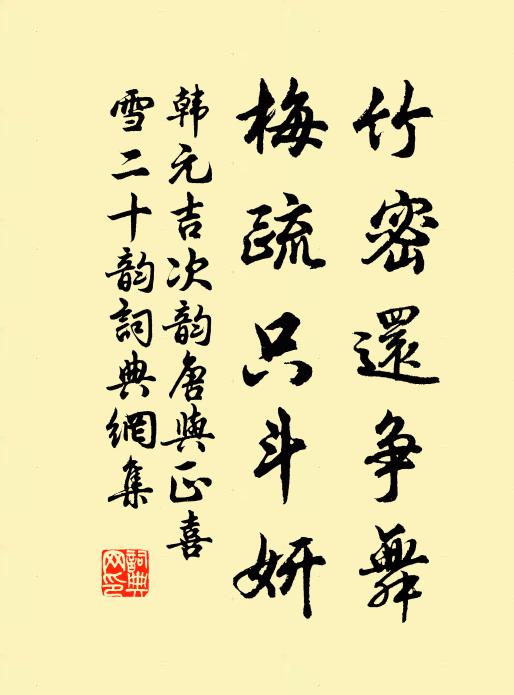 竹密還争舞
梅疏只斗妍
韩元吉次韵唐与正喜
雪二十韵詞典網集
詞典
网印